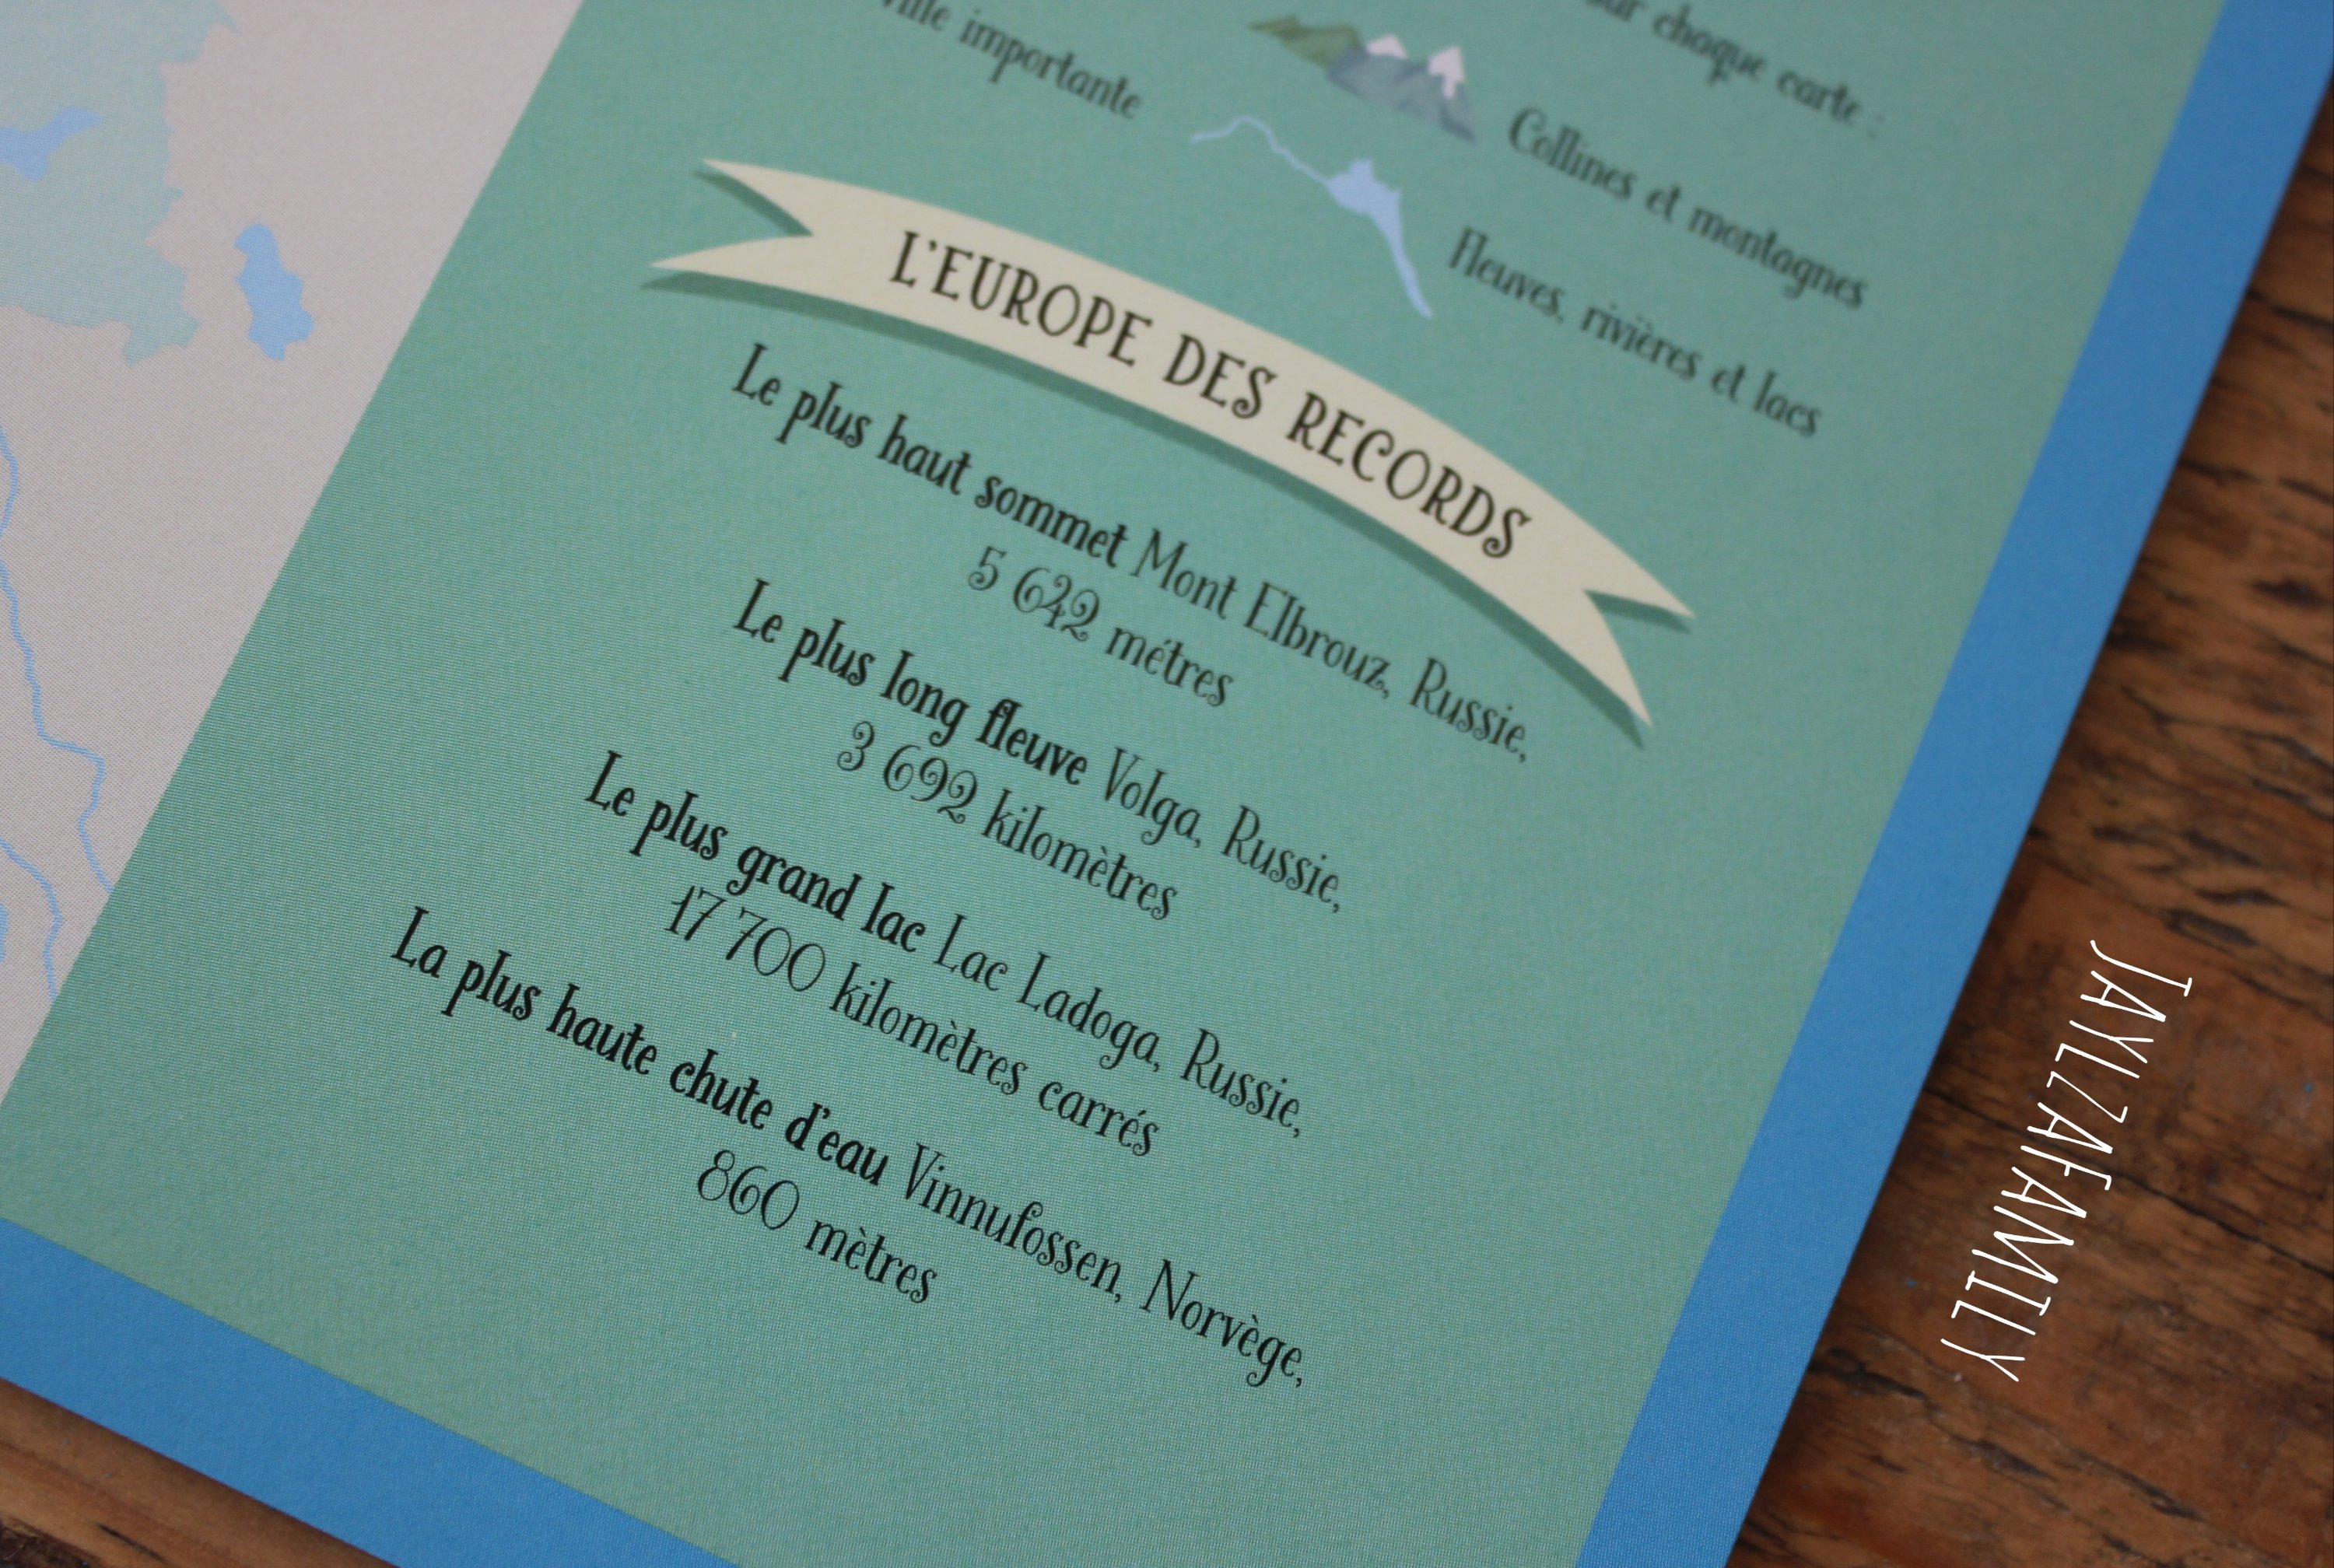 sur chaque carte :
ville importante
Collines et montagnes
Fleuves, rivières et lacs
L'EUROPE DES RECORDS
Le plus haut sommet Mont Elbrouz, Russie,
5 642 métres
Le plus long fleuve Volga, Russie,
3 692 kilomètres
Le plus grand lac Lac Ladoga, Russie,
17 700 kilomètres carrés
La plus haute chute d'eau Vinnufossen, Norvège,
860 mètres
JAYLZAFAMILY